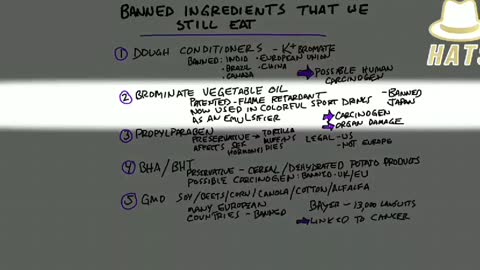 BANNED INGREDIENTS THAT WE
STILL EAT
HATS
1 DOUGH CONDITIONERS - K+ BROMATE
BANNED: INDIA - EUROPEAN UNION
- BRAZIL - CHINA
- CANADA
➡ POSSIBLE HUMAN
CARCINOGEN
2 BROMINATE VEGETABLE OIL
- BANNED
JAPAN
PATENTED - FLAME RETARDANT
NOW USED IN COLORFUL SPORT DRINKS
AS AN EMULSIFIER
➡ CARCINOGEN
➡ ORGAN DAMAGE
3 PROPYLPARABEN
PRESERVATIVE → TORTILLA
MUFFINS
PIES
AFFECTS SEX
HORMONES
LEGAL - US
- NOT EUROPE
4 BHA/BHT
PRESERVATIVE - CEREAL/DEHYDRATED POTATO PRODUCTS
POSSIBLE CARCINOGEN: BANNED: UK/EU
5 GMO SOY/BEETS/CORN/CANOLA/COTTON/ALFALFA
MANY EUROPEAN
COUNTRIES - BANNED
BAYER - 13,000 LAWSUITS
➡ LINKED TO CANCER